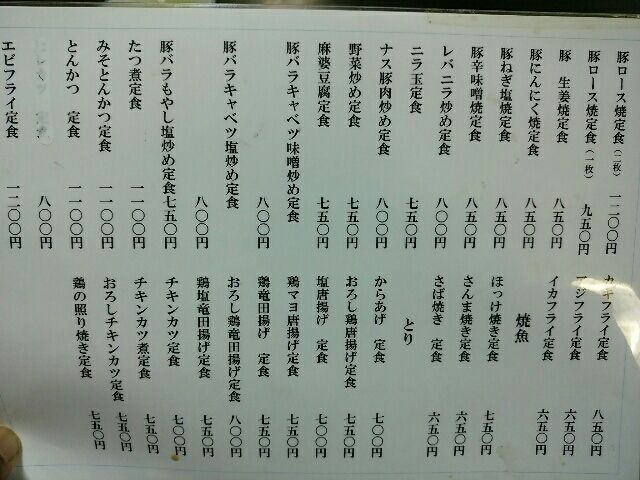 豚ロース焼定食(二枚) 一二〇〇円
豚ロース焼定食(一枚) 九五〇円
豚 生姜焼定食 八五〇円
豚にんにく焼定食 八五〇円
豚ねぎ塩焼定食 八五〇円
豚辛味噌焼定食 八五〇円
レバニラ炒め定食 八〇〇円
ニラ玉定食 七五〇円
ナス豚肉炒め定食 八〇〇円
野菜炒め定食 七五〇円
麻婆豆腐定食 七五〇円
豚バラキャベツ味噌炒め定食 八〇〇円
豚バラキャベツ塩炒め定食 八〇〇円
豚バラもやし塩炒め定食 七五〇円
たつ煮定食 一一〇〇円
みそとんかつ定食 一一〇〇円
とんかつ 定食 一一〇〇円
八〇〇円
エビフライ定食 一二〇〇円
カキフライ定食 八五〇円
アジフライ定食 六五〇円
イカフライ定食 六五〇円
焼魚
ほっけ焼き定食 七五〇円
さんま焼き定食 六五〇円
さば焼き 定食 六五〇円
とり
からあげ 定食 七〇〇円
おろし鶏唐揚げ定食 七五〇円
塩唐揚げ 定食 七五〇円
鶏マヨ唐揚げ定食 七五〇円
鶏竜田揚げ 定食 七五〇円
おろし鶏竜田揚げ定食 八〇〇円
鶏塩竜田揚げ定食 七五〇円
チキンカツ定食 七〇〇円
チキンカツ煮定食 七五〇円
おろしチキンカツ定食 七五〇円
鶏の照り焼き定食 七五〇円